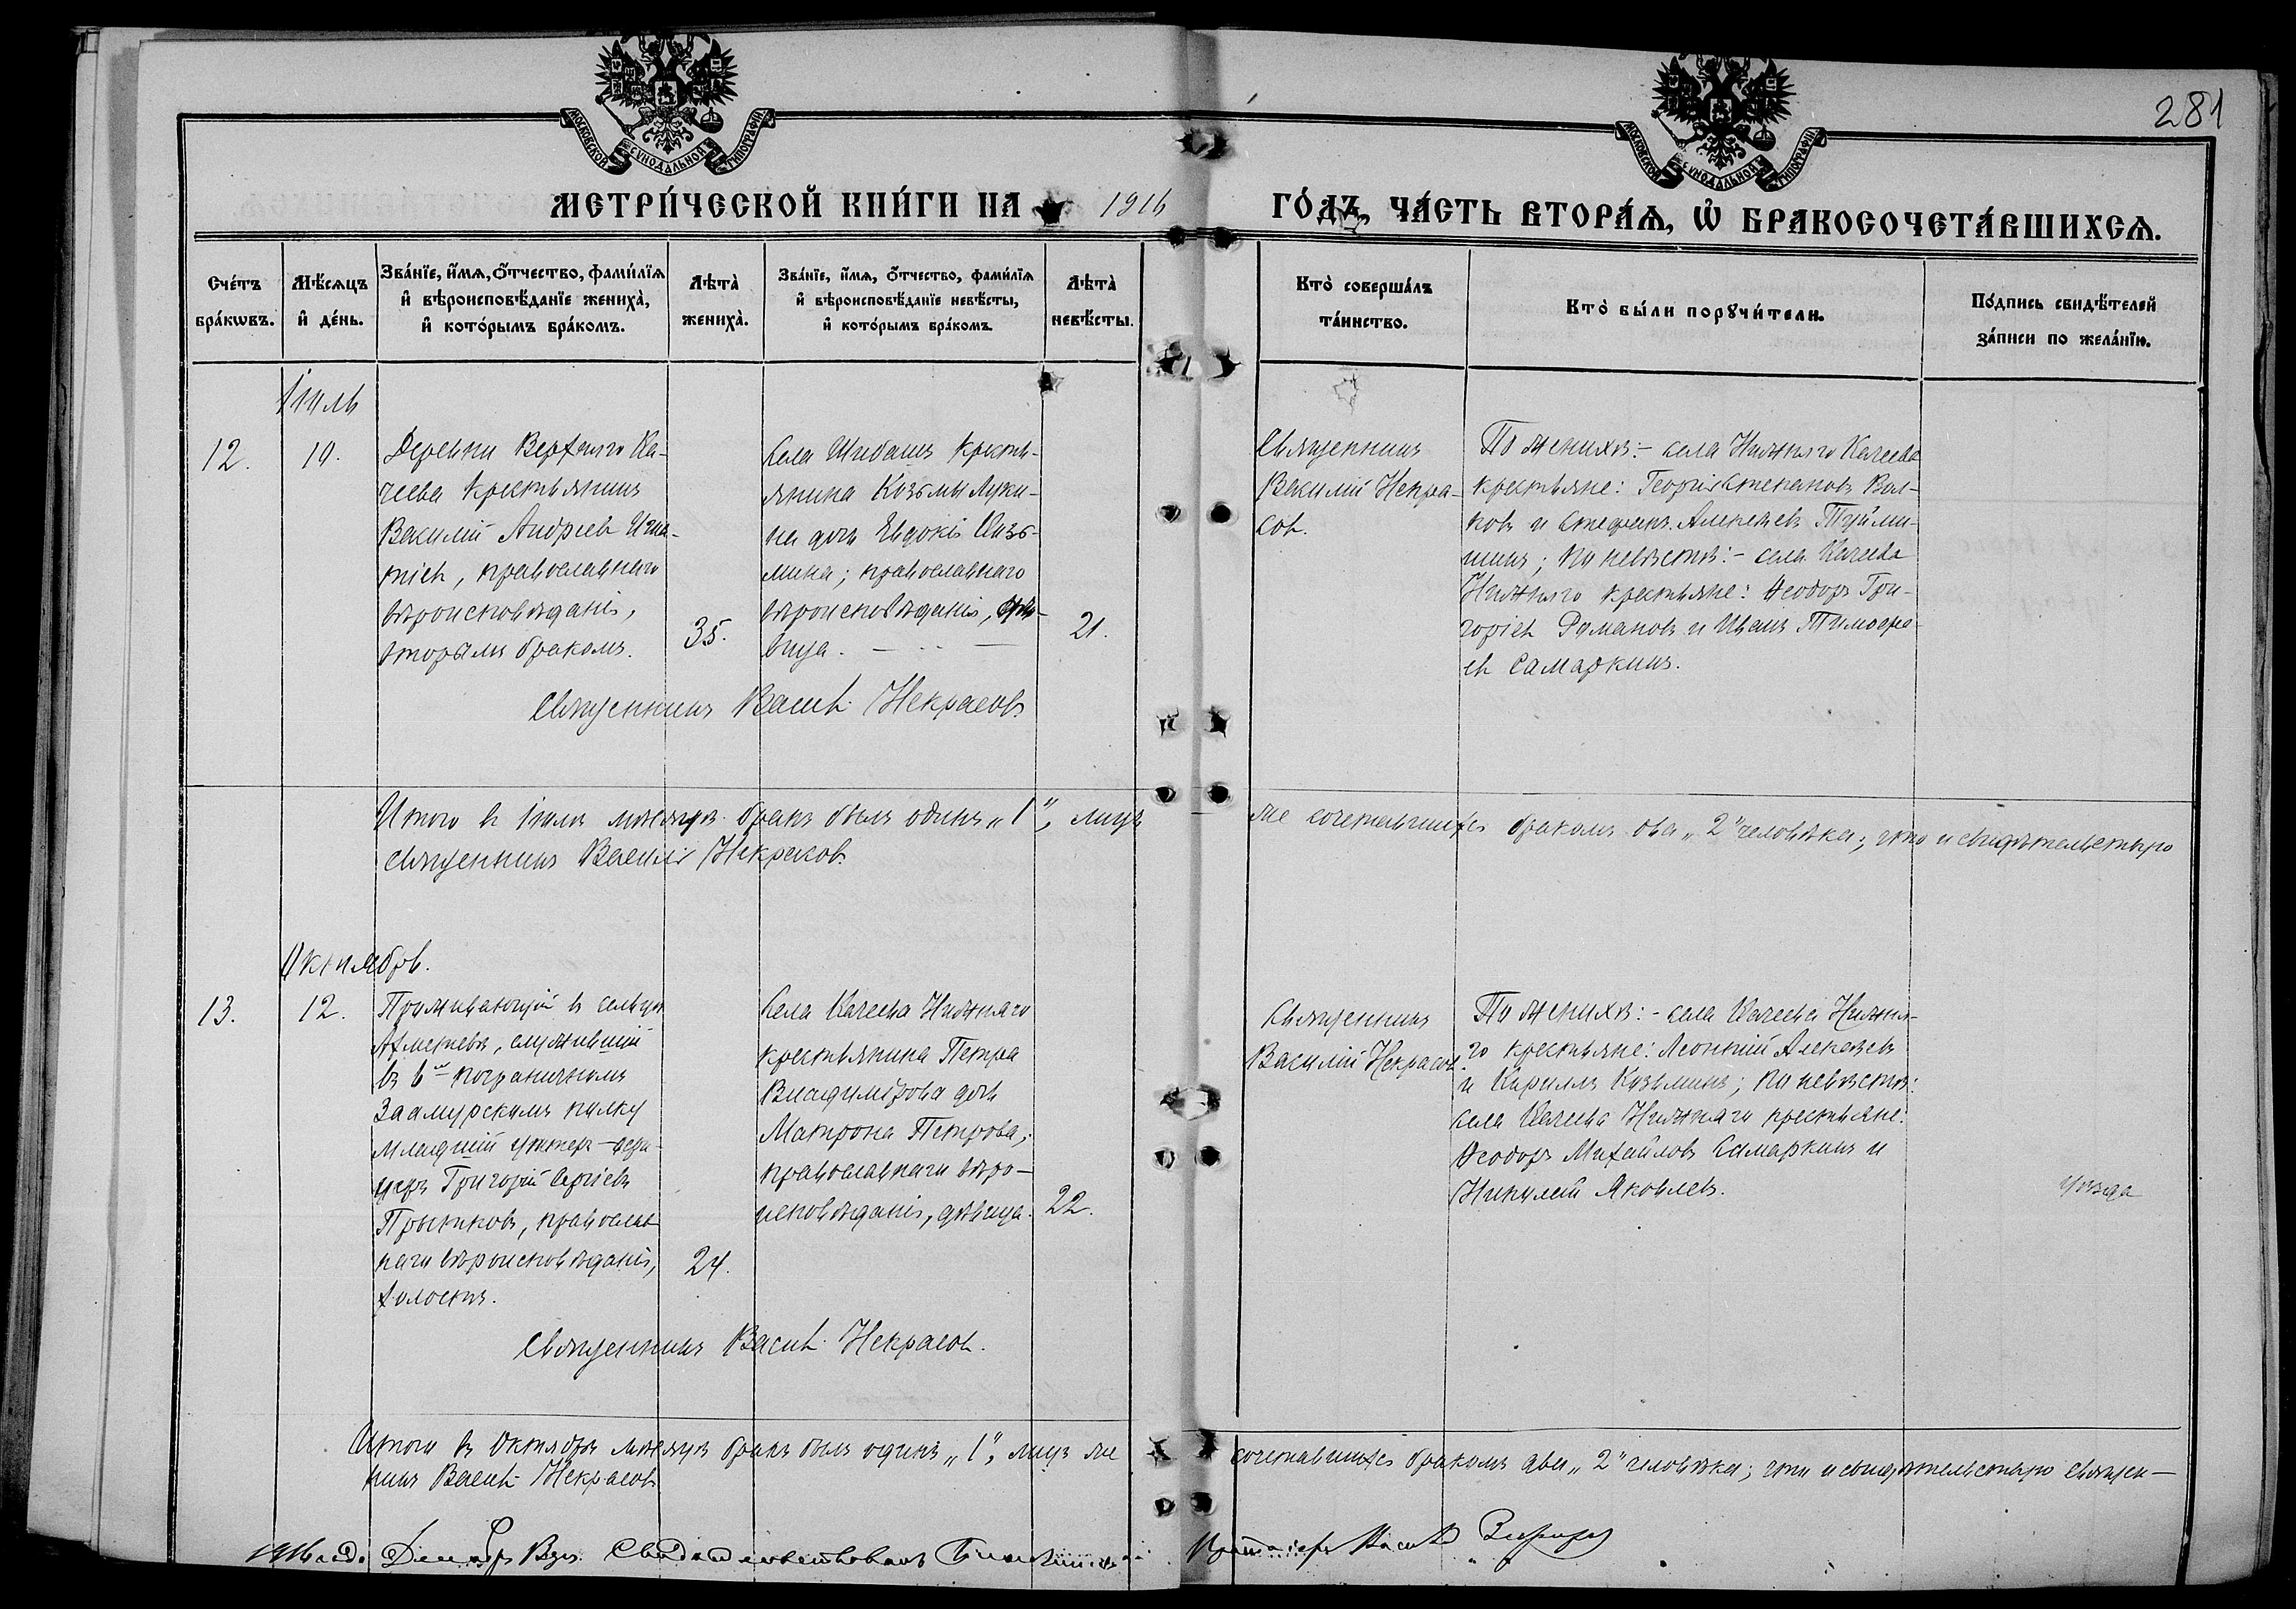 281
МОСКОВСКОЙ СѴНОДАЛЬНОЙ ТИПОГРАФІИ
МОСКОВСКОЙ СѴНОДАЛЬНОЙ ТИПОГРАФІИ
МЕТРИ́ЧЕСКОЙ КНИ́ГИ НА 1916 ГО́ДЪ, ЧА́СТЬ ВТОРА́Ѧ, Ѡ҆ БРАКОСОЧЕТА́ВШИХСѦ.
Сче́тъ
бра́кѡвъ.
Мѣ́сѧцъ
и҆ де́нь.
Зва́нїе, и҆́мѧ, ѻ҆́тчество, фами́лїѧ
и҆ вѣроисповѣ́данїе жениха̀,
и҆ кото́рымъ бра́комъ.
Лѣта̀
жениха̀.
Зва́нїе, и҆́мѧ, ѻ҆́тчество, фами́лїѧ
и҆ вѣроисповѣ́данїе невѣ́сты,
и҆ кото́рымъ бра́комъ.
Лѣта̀
невѣ́сты.
Кто̀ соверша́лъ
та́инство.
Кто̀ бы́ли порꙋчи́тели.
По́дпись свидѣ́телей
за́писи по жела́нїю.
Іюль
12.
10.
Деревни Верхняго Ка-
чеева крестьянинъ
Василій Андріевъ Игна-
тіевъ, православнаго
вѣроисповѣданія,
вторымъ бракомъ.
35.
Села Шибашъ крестья-
янина Козьмы Луки-
на дочь Евдокія Козь-
мина; православнаго
вѣроисповѣданія, дѣ-
вица.
21.
Священникъ
Василій Некра-
совъ.
По женихѣ: – села Нижняго Качеева
крестьяне: Георгій Степановъ Вол-
ковъ и Стефанъ Алексѣевъ Туйми-
шинъ; по невѣстѣ: – села Качеева
Нижняго крестьяне: Ѳеодоръ Гри-
горіевъ Романовъ и Иванъ Тимоѳе-
евъ Самаркинъ.
Священникъ Васил. Некрасовъ
Итого въ іюлѣ мѣсяцѣ бракъ былъ одинъ „1", лицъ же сочетавшихся бракомъ два „2" человѣка; что и свидѣтельствую
священникъ Василій Некрасовъ.
Октябрь.
13.
12.
Проживающій въ сельцѣ
Ахметевѣ, служившій
въ 6м пограничномъ
Заамурскомъ полку
младшій унтеръ-офи-
церъ Григорій Сергіевъ
православ-
наго вѣроисповѣданія,
холостъ.
24.
Села Качеева Нижняго
крестьянина Петра
Владимірова дочь
Матрона Петрова,
православнаго вѣро-
исповѣданія, дѣвица.
22.
Священникъ
Василій Некрасовъ.
По женихѣ: – села Качеева Нижня-
го крестьяне: Леонтій Алексѣевъ
и Кириллъ Козьминъ; по невѣстѣ:
села Качеева Нижняго крестьяне:
Ѳеодоръ Михайловъ Самаркинъ и
Николай Яковлевъ.
Священникъ Васил. Некрасовъ.
Итого въ Октябрѣ мѣсяцѣ бракъ былъ одинъ „1", лицъ же сочетавшихся бракомъ два „2" человѣка; что и свидѣтельствую священ-
никъ Васил. Некрасовъ
1916 года Декабря